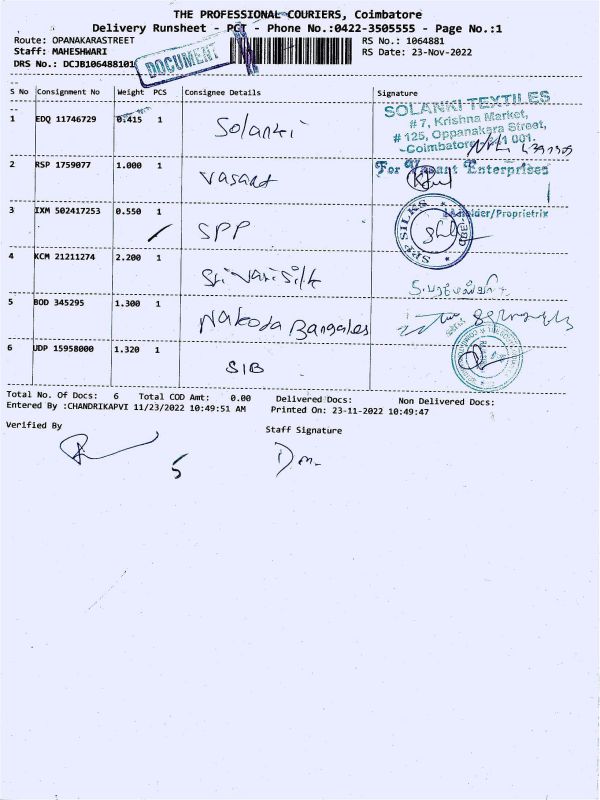 THE PROFESSIONAL COURIERS, Coimbatore
Delivery Runsheet - PCT - Phone No.:0422-3505555 - Page No.:1
Route: OPANAKARASTREET RS No.: 1064881
Staff: MAHESHWARI RS Date: 23-Nov-2022
DRS No.: DCJB106488101
DOCUMENT
S No Consignment No Weight PCS Consignee Details Signature
1 EDQ 11746729 0.415 1 Solanki
SOLANKI TEXTILES
# 7, Krishna Market,
# 125, Oppanakara Street,
Coimbatore - 641 001.
2 RSP 1759077 1.000 1 Vasant
For Vasant Enterprises
/Proprietrix
3 IXM 502417253 0.550 1 SPP
SPP SILKS
4 KCM 21211274 2.200 1 Sri Vari Silk
5 BOD 345295 1.300 1 Nakoda Bangales
6 UDP 15958000 1.320 1 SIB
Total No. Of Docs: 6 Total COD Amt: 0.00 Delivered Docs: Non Delivered Docs:
Entered By :CHANDRIKAPVI 11/23/2022 10:49:51 AM Printed On: 23-11-2022 10:49:47
Verified By Staff Signature
5